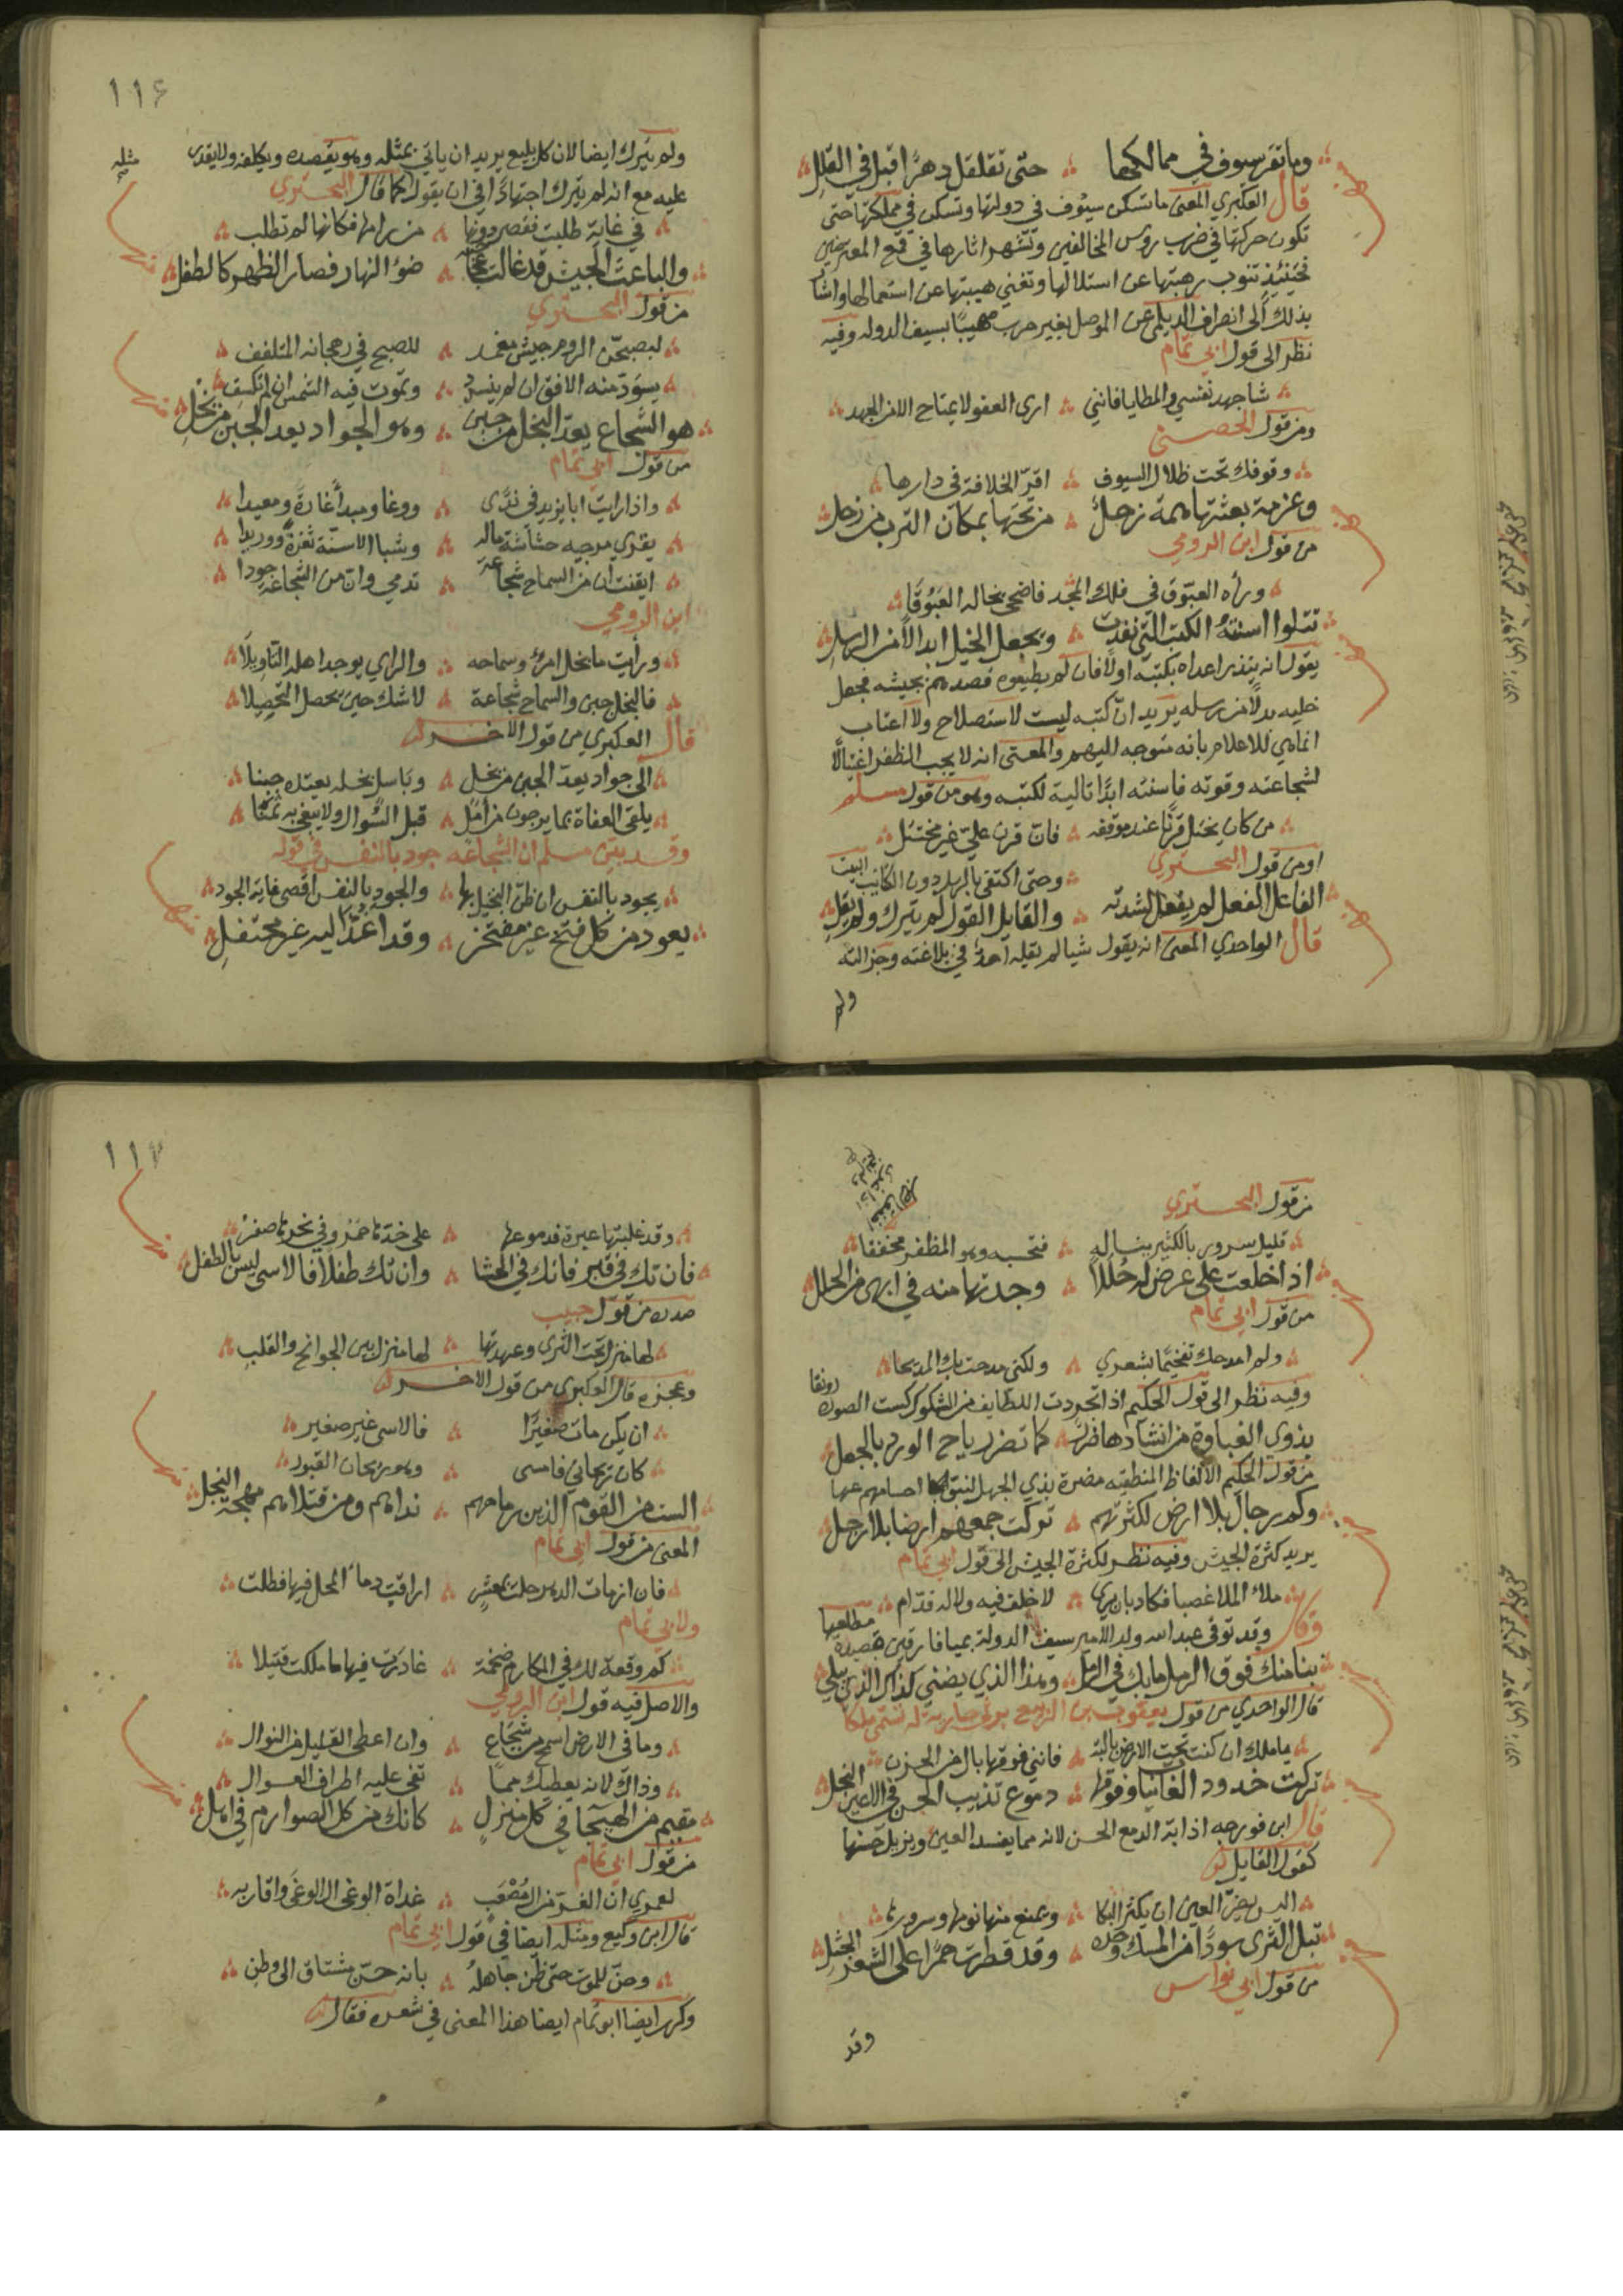 وما تقر سيوف في ممالكها ؞ حتى تقلقل دهرا قبل في القلل
قال العكبري المعنى ما تسكن سيوف في دولتها وتسكن في مملكتها حتى
تكون حركتها في ضرب رؤس المخالفين وتشهر اثارها في قمع المعترضين
فحينئذ تنوب رهبتها عن استلالها وتغني هيبتها عن استعمالها واشا
بذلك الى انصراف الديلمي عن الموصل بغير حرب مهيبا بسيف الدوله وفيه
نظر الى قول ابي تمام
شا جهد نفسي والمطايا فانني ؞ ارى العفو لا يمتاح الا من الجهد
ومن قول الحصني
وقوفك تحت ظلال السيوف ؞ اقر الخلافة في دارها
وعزمة بعثتها همة زحل ؞ من تحتها بمكان الترب من زحل
من قول ابن الرومي
ورأه العيوق في فلك المجد فاضحى يخاله العيوقا
تتلوا اسنته الكتب التي نفذت ؞ ويجعل الخيل ابدالا من الرسل
يقول انه ينذر اعداه بكتبه اولا فان لم يطيعوه قصدهم بجيشه فجعل
خليه بدلا من رسله يريد ان كتبه ليست لاستصلاح ولا اعتاب
انما هي للاعلام بانه متوجه اليهم والمعنى انه لا يحب الظفر اغتيالا
لشجاعته وقوته فاسنته ابدا تالية لكتبه وهو من قول مسلم
من كان يختل قرنا عند موقفه ؞ فان قرن علي غير مختتل
او من قول البحتري ؞ وحتى اكتفى بالرسل دون الكتائب البيت
الفاعل الفعل لم يفعل لشدته ؞ والقايل القول لم يترك ولم يقل
قال الواحدي المعنى انه يقول شيا لم يقله احد في بلاغته وجزالته
ولم
١١٤
ولم يترك ايضا لان كل بليغ يريد ان ياتي بمثله وهو يقصده ويكلفه ولا يقدر
مثله
عليه مع انه لم يترك اجتهادا في ان يقول كما قال البحتري
في غاية طلبت فقصر دونها ؞ من رامها فكانها لم تطلب
والباعث الجيش قد غالت عجاجته ؞ ضوء النهار فصار الظهر كالطفل
من قول البحتري
ليصبحن الروم جيش مغمد ؞ للصبح في رهجانه المتلفف
يسود منه الافق ان لم ينسدد ؞ وتموت فيه الشمس ان لم تكسف
هو الشجاع يعد البخل من جبن ؞ وهو الجواد يعد الجبن من بخل
من قول ابي تمام
واذا رايت ابا يزيد في ندى ؞ ووغا ومبدأ غارة ومعيدا
يقري مرجيه حشاشة ماله ؞ وشبا الاسنة ثغرة ووريدا
ايقنت ان من السماح شجاعة ؞ تدمي وان من الشجاعة جودا
ابن الرومي
ورأيت ما بخل امرئ وسماحه ؞ والراي يوجد اهله التأويلا
فالبخل جبن والسماح شجاعة ؞ لا شك حين يحصل التحصيلا
قال العكبري من قول الاخر
الى جواد يعد الجبن من بخل ؞ وباسل بخله يعتده جبنا
يلقى العفاة بما يرجون من امل ؞ قبل السؤال ولا يبغي به ثمنا
وقد بين مسلم ان الشجاعه جود بالنفس في قوله
يجود بالنفس ان ظن البخيل بها ؞ والجود بالنفس اقصى غاية الجود
يعود من كل فتح غير مفتخر ؞ وقد اغذ اليه غير محتفل
من قول البحتري
قليل سرور بالكثير يناله ؞ فتحسبه وهو المظفر مخفقا
اذا خلعت على عرض له حللا ؞ وجدتها منه في ابهى من الحلل
من قول ابي تمام
ولم امدحك تفخيما بشعري ؞ ولكني مدحت بك المديحا
وفيه نظر الى قول الحكيم اذا تجردت اللطايف من الشكوك كست الصورة رونقا
بذوي الغباوة من انشادها ضرر ؞ كما تضر رياح الورد بالجعل
من قول الحكيم الالفاظ المنطقيه مضرة بذي الجهل لنبو احساسهم عنها
وكم رجال بلا ارض لكثرتهم ؞ تركت جمعهم ارضا بلا رجل
يريد كثرة الجيش وفيه نظر لكثرة الجيش الى قول ابي تمام
ملأ الملا غصبا فكاد بان يرى ؞ لا خلف فيه ولا له قدام
وقال وقد توفي عبد الله ولد الامير سيف الدولة بميافارقين قصيدة مطلعها
بنا منك فوق الرمل ما بك في الرمل ؞ وهذا الذي يضني كذاك الذي يبلي
قال الواحدي من قول يعقوب بن الربيع يرثي جارية له تسمى ملكا
يا ملك ان كنت تحت الارض بالية ؞ فانني فوقها بال من الحزن
تركت خدود الغانيات وفوقها ؞ دموع تذيب الحسن في الاعين النجل
قال ابن فورجه اذابة الدمع الحسن لانه مما يفسد العين ويزيل حسنها
كقول القايل
اليس يضر العين ان يكثر البكا ؞ ويمنع منها نومها وسرورها
تبل الثرى سودا من المسك وحده ؞ وقد قطرت حمرا على الشعر الجثل
من قول ابي نواس
وقد
وقد غلبتها عبرة فدموعها ؞ على خدها حمر وفي نحرها صفر
فان تك في قبر فانك في الحشا ؞ وان تك طفلا فالاسى ليس بالطفل
صدره من قول حبيب
لها منزل تحت الثرى وعهدتها ؞ لها منزل بين الجوانح والقلب
وعجزه قال العكبري من قول الاخر
ان يكن مات صغيرا ؞ فالاسى غير صغير
كان ريحاني فامسى ؞ وهو ريحان القبور
الست من القوم الذين رماحهم ؞ نداهم ومن قتلاهم مهجة البخل
المعنى من قول ابي تمام
فان ازمات الدهر حلت بمعشر ؞ اراقت دماء المحل فيها فطلت
ولابي تمام
كم وقعة لك في المكارم ضخمة ؞ غادرت فيها ما ملكت قتيلا
والاصل فيه قول ابن الرومي
وما في الارض اسمح من شجاع ؞ وان اعطى القليل من النوال
وذاك لانه يعطيك مما ؞ تفي عليه اطراف العوال
مقيم من الهيجا في كل منزل ؞ كانك من كل الصوارم في اهل
من قول ابي تمام
لعمري ان الغر من ال مصعب ؞ غداة الوغى ال الوغى واقاربه
قال ابن وكيع ومثله ايضا في قول ابي تمام
وحن للموت حتى ظن جاهله ؞ بانه حن مشتاق الى وطن
وكرر ايضا ابو تمام ايضا هذا المعنى في شعره فقال